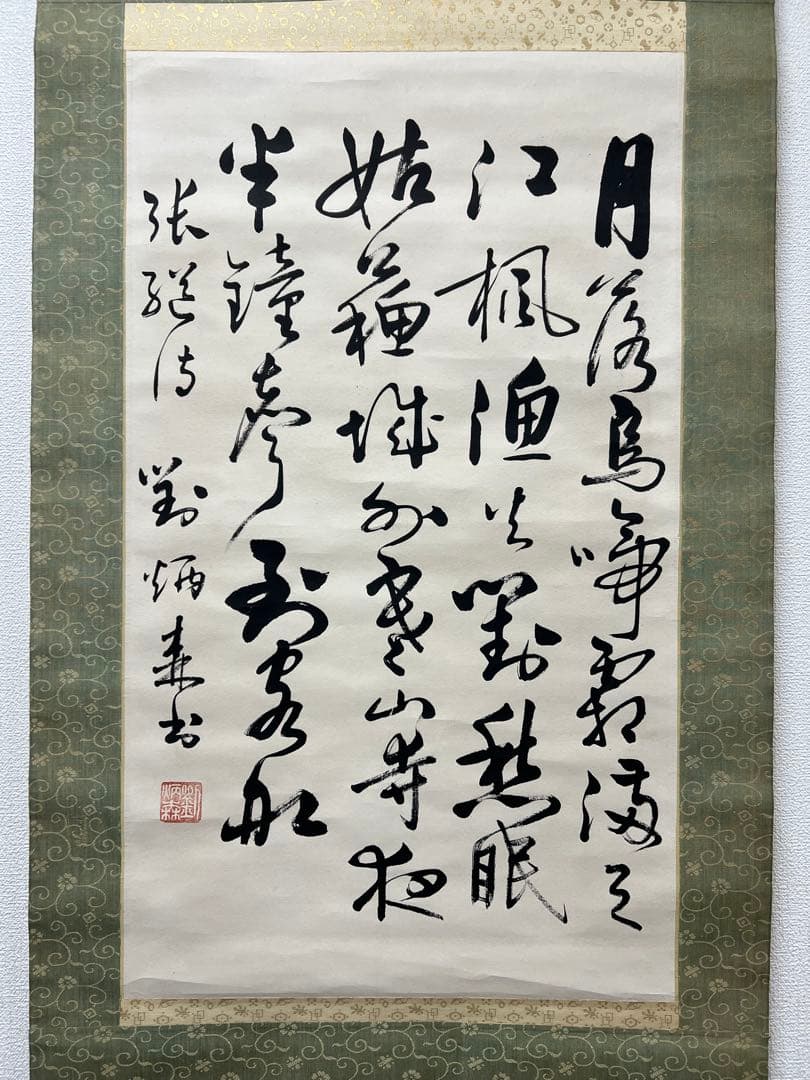 月落烏啼霜満天
江楓漁火對愁眠
姑蘇城外寒山寺夜
半鐘聲到客船
張継诗 劉炳森书
劉炳森